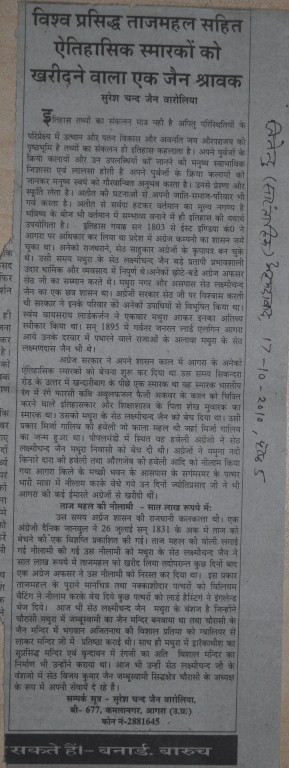 विश्व प्रसिद्ध ताजमहल सहित
ऐतिहासिक स्मारकों को
खरीदने वाला एक जैन श्रावक
सुरेश चन्द जैन वारोलिया
इतिहास तथ्यों का संकलन मात्र नहीं है अपितु परिस्थितियों के
परिप्रेक्ष्य में उत्थान और पतन विकास और अवनति जय और पराजय की
पृष्ठभूमि है तथ्यों का संकलित ही इतिहास कहलाता है। अपने पूर्वजों के
क्रिया कलापों और उन उपलब्धियों को जानने की मनुष्य स्वाभाविक
जिज्ञासा एवं लालसा होती है अपने पूर्वजों के क्रिया कलापों को
जानकर मनुष्य स्वयं को गौरवान्वित अनुभव करता है। उनसे प्रेरणा और
स्फूर्ति लेता है। अतीत की घटनाओं से अपनी जाति-समाज-परिवार भी
गर्व करता है। अतीत से सर्वदा हटकर वर्तमान का मूल्य नगण्य है
भविष्य के बीज भी वर्तमान में सम्भाव्य बनाने में ही इतिहास की यथार्थ
उपयोगिता है।
इतिहास गवाह सन् 1803 से ईस्ट इण्डिया कं0 ने
आगरा पर अधिकार कर लिया था प्रदेश में अंग्रेज कम्पनी का शासन जमे
चुका था। अनेकों राजघराने, सेठ साहूकार अंग्रेजों के कृपापात्र बन चुके
थे। उसी समय मथुरा के सेठ लक्ष्मीचन्द जैन बड़े प्रतापी प्रभावशाली
उदार धार्मिक और व्यवसाय में निपुण थे। अनेकों छोटे-बड़े अंग्रेज अफसर
सेठ जी का सम्मान करते थे। मथुरा नगर और आसपास सेठ लक्ष्मीचन्द
जैन का एक छत्र शासन था। अंग्रेजी सरकार सेठ जी पर विश्वास करती
थी सरकार ने इनके परिवार को अनेकों उपाधियों से विभूषित किया था।
स्वयं वायसराय लार्डकर्जन ने एकबार मथुरा आकर इनका आतिथ्य
स्वीकार किया था। सन् 1895 में गर्वनर जनरल लार्ड एलगिन आगरा
आये उनके दरबार में पधारने वाले राजाओं के अलावा मथुरा के सेठ
लक्ष्मणदास जैन भी थे।
अंग्रेज सरकार ने अपने शासन काल में आगरा के अनेकों
ऐतिहासिक स्मारकों को बेचना शुरू कर दिया था उस समय सिकन्दरा
रोड के उत्तर में खन्दारीबाग के पीछे एक स्मारक था वह स्मारक भारतीय
रंग में रंगे फारसी कवि अबुलफजल फैजी अकबर के काल को चित्रित
करने वाले इतिहासकार और शिक्षाशास्त्र के पिता शेख मुबारक का
स्मारक था। उसको मथुरा के सेठ लक्ष्मीचन्द जैन को बेच दिया था। उसी
प्रकार मिर्जा गालिब की हवेली जो काला महल थी जहां मिर्जा गालिब
का जन्म हुआ था। पीपलमंडी में स्थित वह हवेली अंग्रेजों ने सेठ
लक्ष्मीचन्द जैन मथुरा निवासी को बेच दी थी। अंग्रेजों ने यमुना नदी
किनारे दारा की हवेली तथा औरंगजेब की हवेली आदि को नीलाम किया
गया आगरा किले के मच्छी भवन के आसपास के संगमरमर के पत्थर
भारी मात्रा में नीलाम करके बेचे गये उन दिनों ज्योतिप्रसाद जी ने भी
आगरा की कई ईमारते अंग्रेजों से खरीदी थीं।
ताज महल की नीलामी - सात लाख रूपये में:
उस समय अंग्रेज शासन की राजधानी कलकत्ता थी। एक
अंग्रेजी दैनिक जानबुल ने 26 जुलाई सन् 1831 के अंक में ताज को
बेचने की एक विज्ञप्ति प्रकाशित की गई। ताज महल की बोली लगाई
गई नीलामी की गई उस नीलामी को मथुरा के सेठ लक्ष्मीचन्द जैन ने
सात लाख रूपये में ताजमहल को खरीद लिया तदोपरान्त कुछ दिनों बाद
एक अंग्रेज अफसर ने उस नीलामी को निरस्त कर दिया था। इस प्रकार
ताजमहल के पुराने मानचित्र तथा नक्काशीदार पत्थरों को विलियम
बैटिंग ने नीलाम करके बेच दिये कुछ पत्थरों को लार्ड हेस्टिंग ने इंगलेण्ड
भेज दिये। आज भी सेठ लक्ष्मीचन्द जैन मथुरा के वंशज हैं जिन्होंने
चौरासी मथुरा में जम्बूस्वामी का जैन मन्दिर बनवाया था तथा चौरासी के
जैन मन्दिर में भगवान अजितनाथ की विशाल प्रतिमा को ग्वालियर से
लाकर मन्दिर जी में प्रतिष्ठा कराई थी। साथ ही मथुरा में द्वारिकाधीश का
सुप्रसिद्ध मन्दिर एवं वृन्दावन में रंगजी का अति विशाल मन्दिर का
निर्माण भी उन्होंने कराया था। आज भी उन्हीं सेठ लक्ष्मीचन्द जी के
वंशजों में सेठ विजय कुमार जैन जम्बूस्वामी सिद्धक्षेत्र चौरासी के अध्यक्ष
के रूप में अपनी सेवायें दे रहे हैं।
सम्पर्क सूत्र - सुरेश चन्द जैन वारोलिया,
बी- 677, कमलानगर, आगरा (उ.प्र.)
फोन नं-2881645
सकते हैं।- बनार्ड. बारुच
17-10-2010